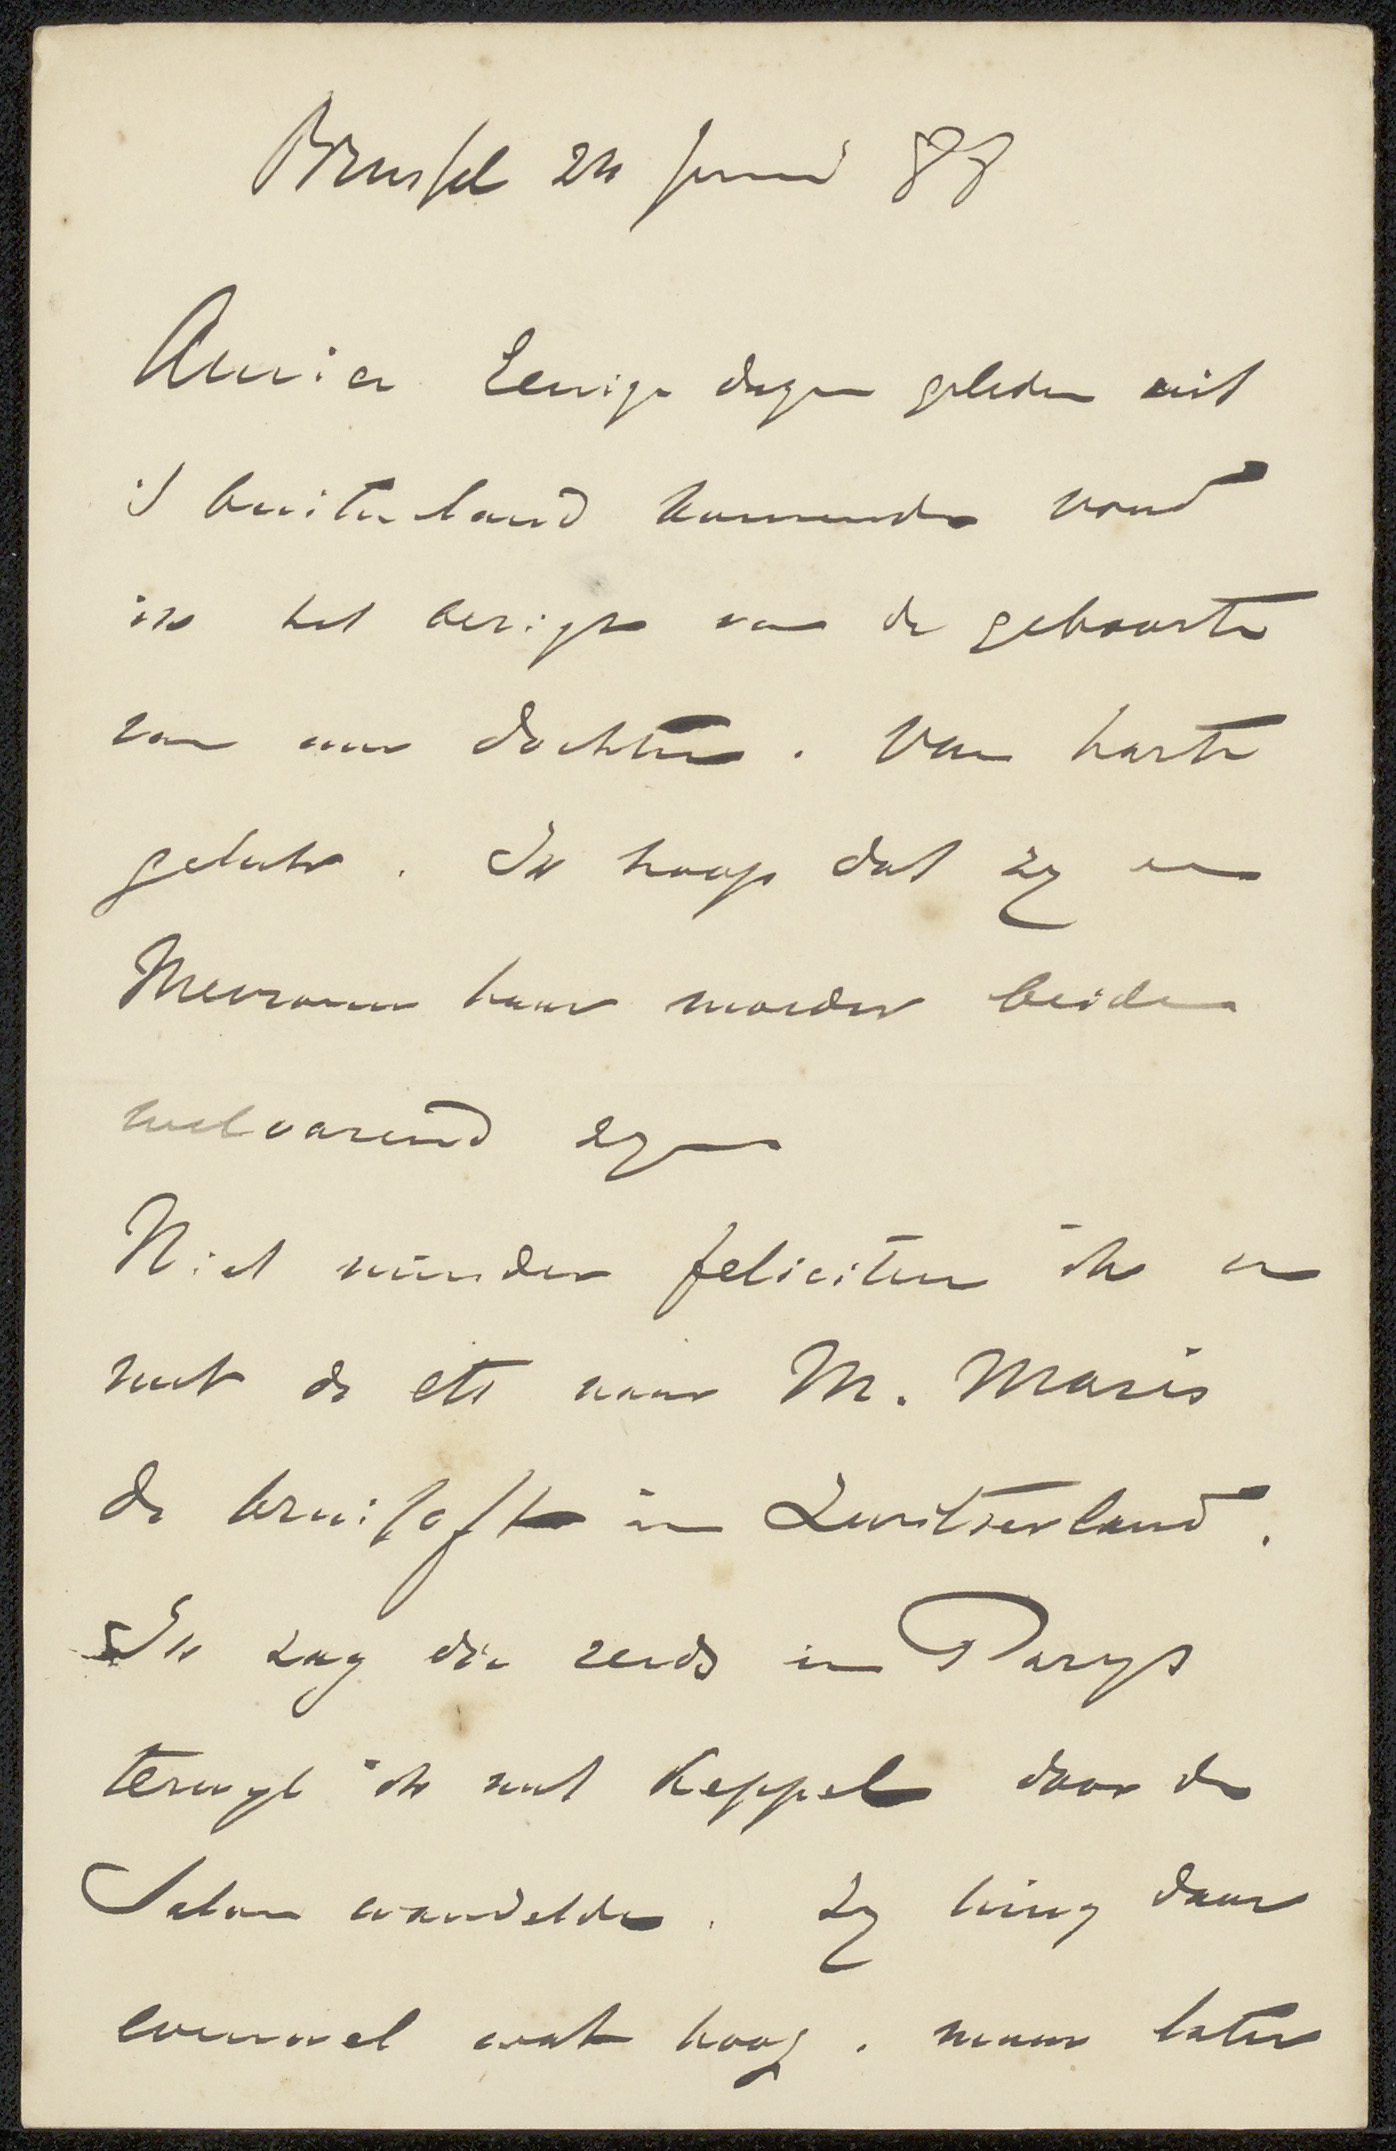 Brussel 24 Juni 88
Amice Eenige dagen geleden uit
't buitenland komende vond
ik het berigt van de geboorte
van uw dochter. Van harte
geluk. Ik hoop dat zy en
Mevrouw haar moeder beiden
welvarend zyn
Niet minder feliciteer ik u
met de ets naar M. Maris
de bruiloft in Zwitserland.
Ik zag die reeds in Parys
terwyl ik met Keppel door de
Salon wandelde. Zy hing daar
evenwel wat hoog. maar later